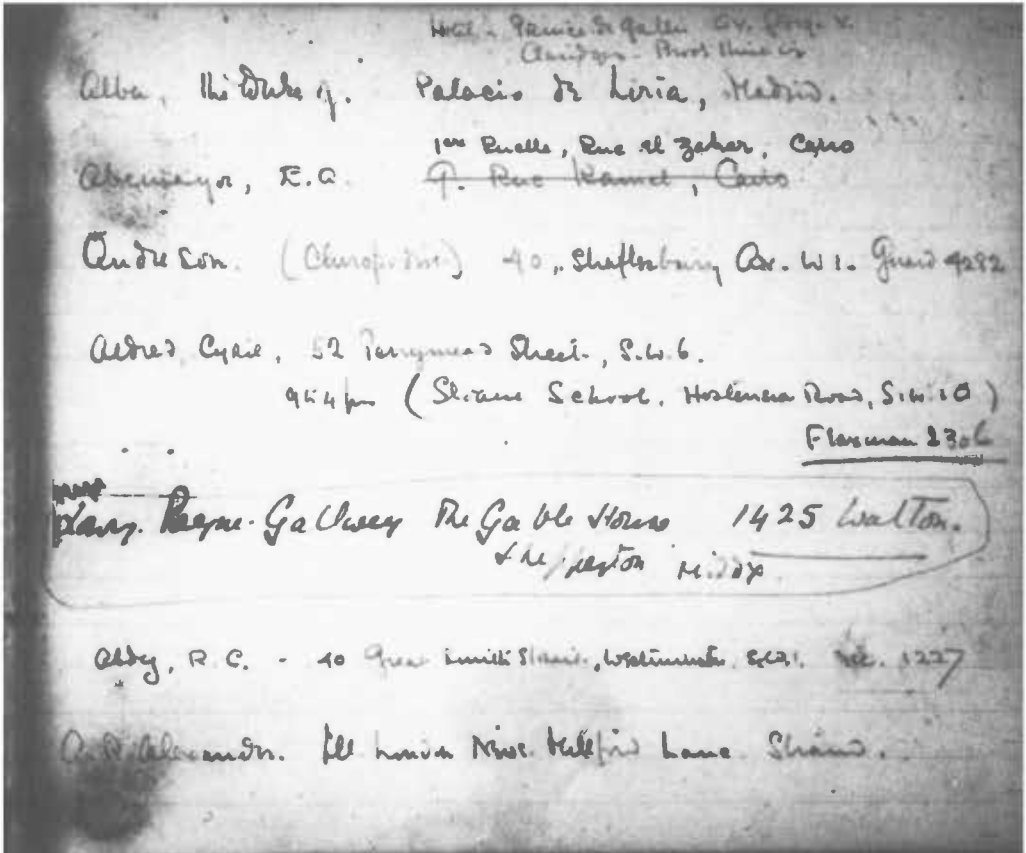 Hotel - Prince de Galles Av. Georg. V.
Claridges - Brook
Alba, the Duke of. Palacio de Liria, Madrid.
1ère Ruelle, Rue el Zahar, Cairo
Abemayor, E.A. 9. Rue Kamel, Cairo
Anderson. (Chiropodist) 40, Shaftesbury Av. W1. Gerrard 4282
Aldred, Cyril, 52 Perrymead Street, S.W.6.
9 to 4 pm (Sloane School, Hortensia Road, S.W.10)
Flaxman 2306
Payne-Gallwey The Gable House 1425 Walton.
Shepperton Middx
Abdy, R.C. - 40 Great Smith Street, Westminster, S.W.1. 1227
Alexander. Ill. London News. Milford Lane. Strand.